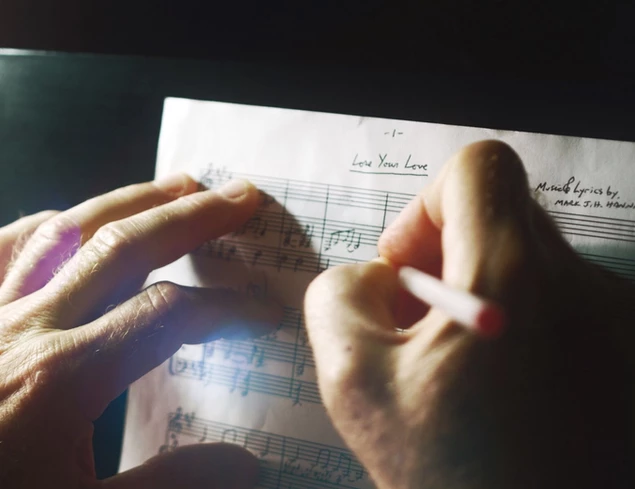 -1-
Lose Your Love
Music & Lyrics by,
MARK J.H.